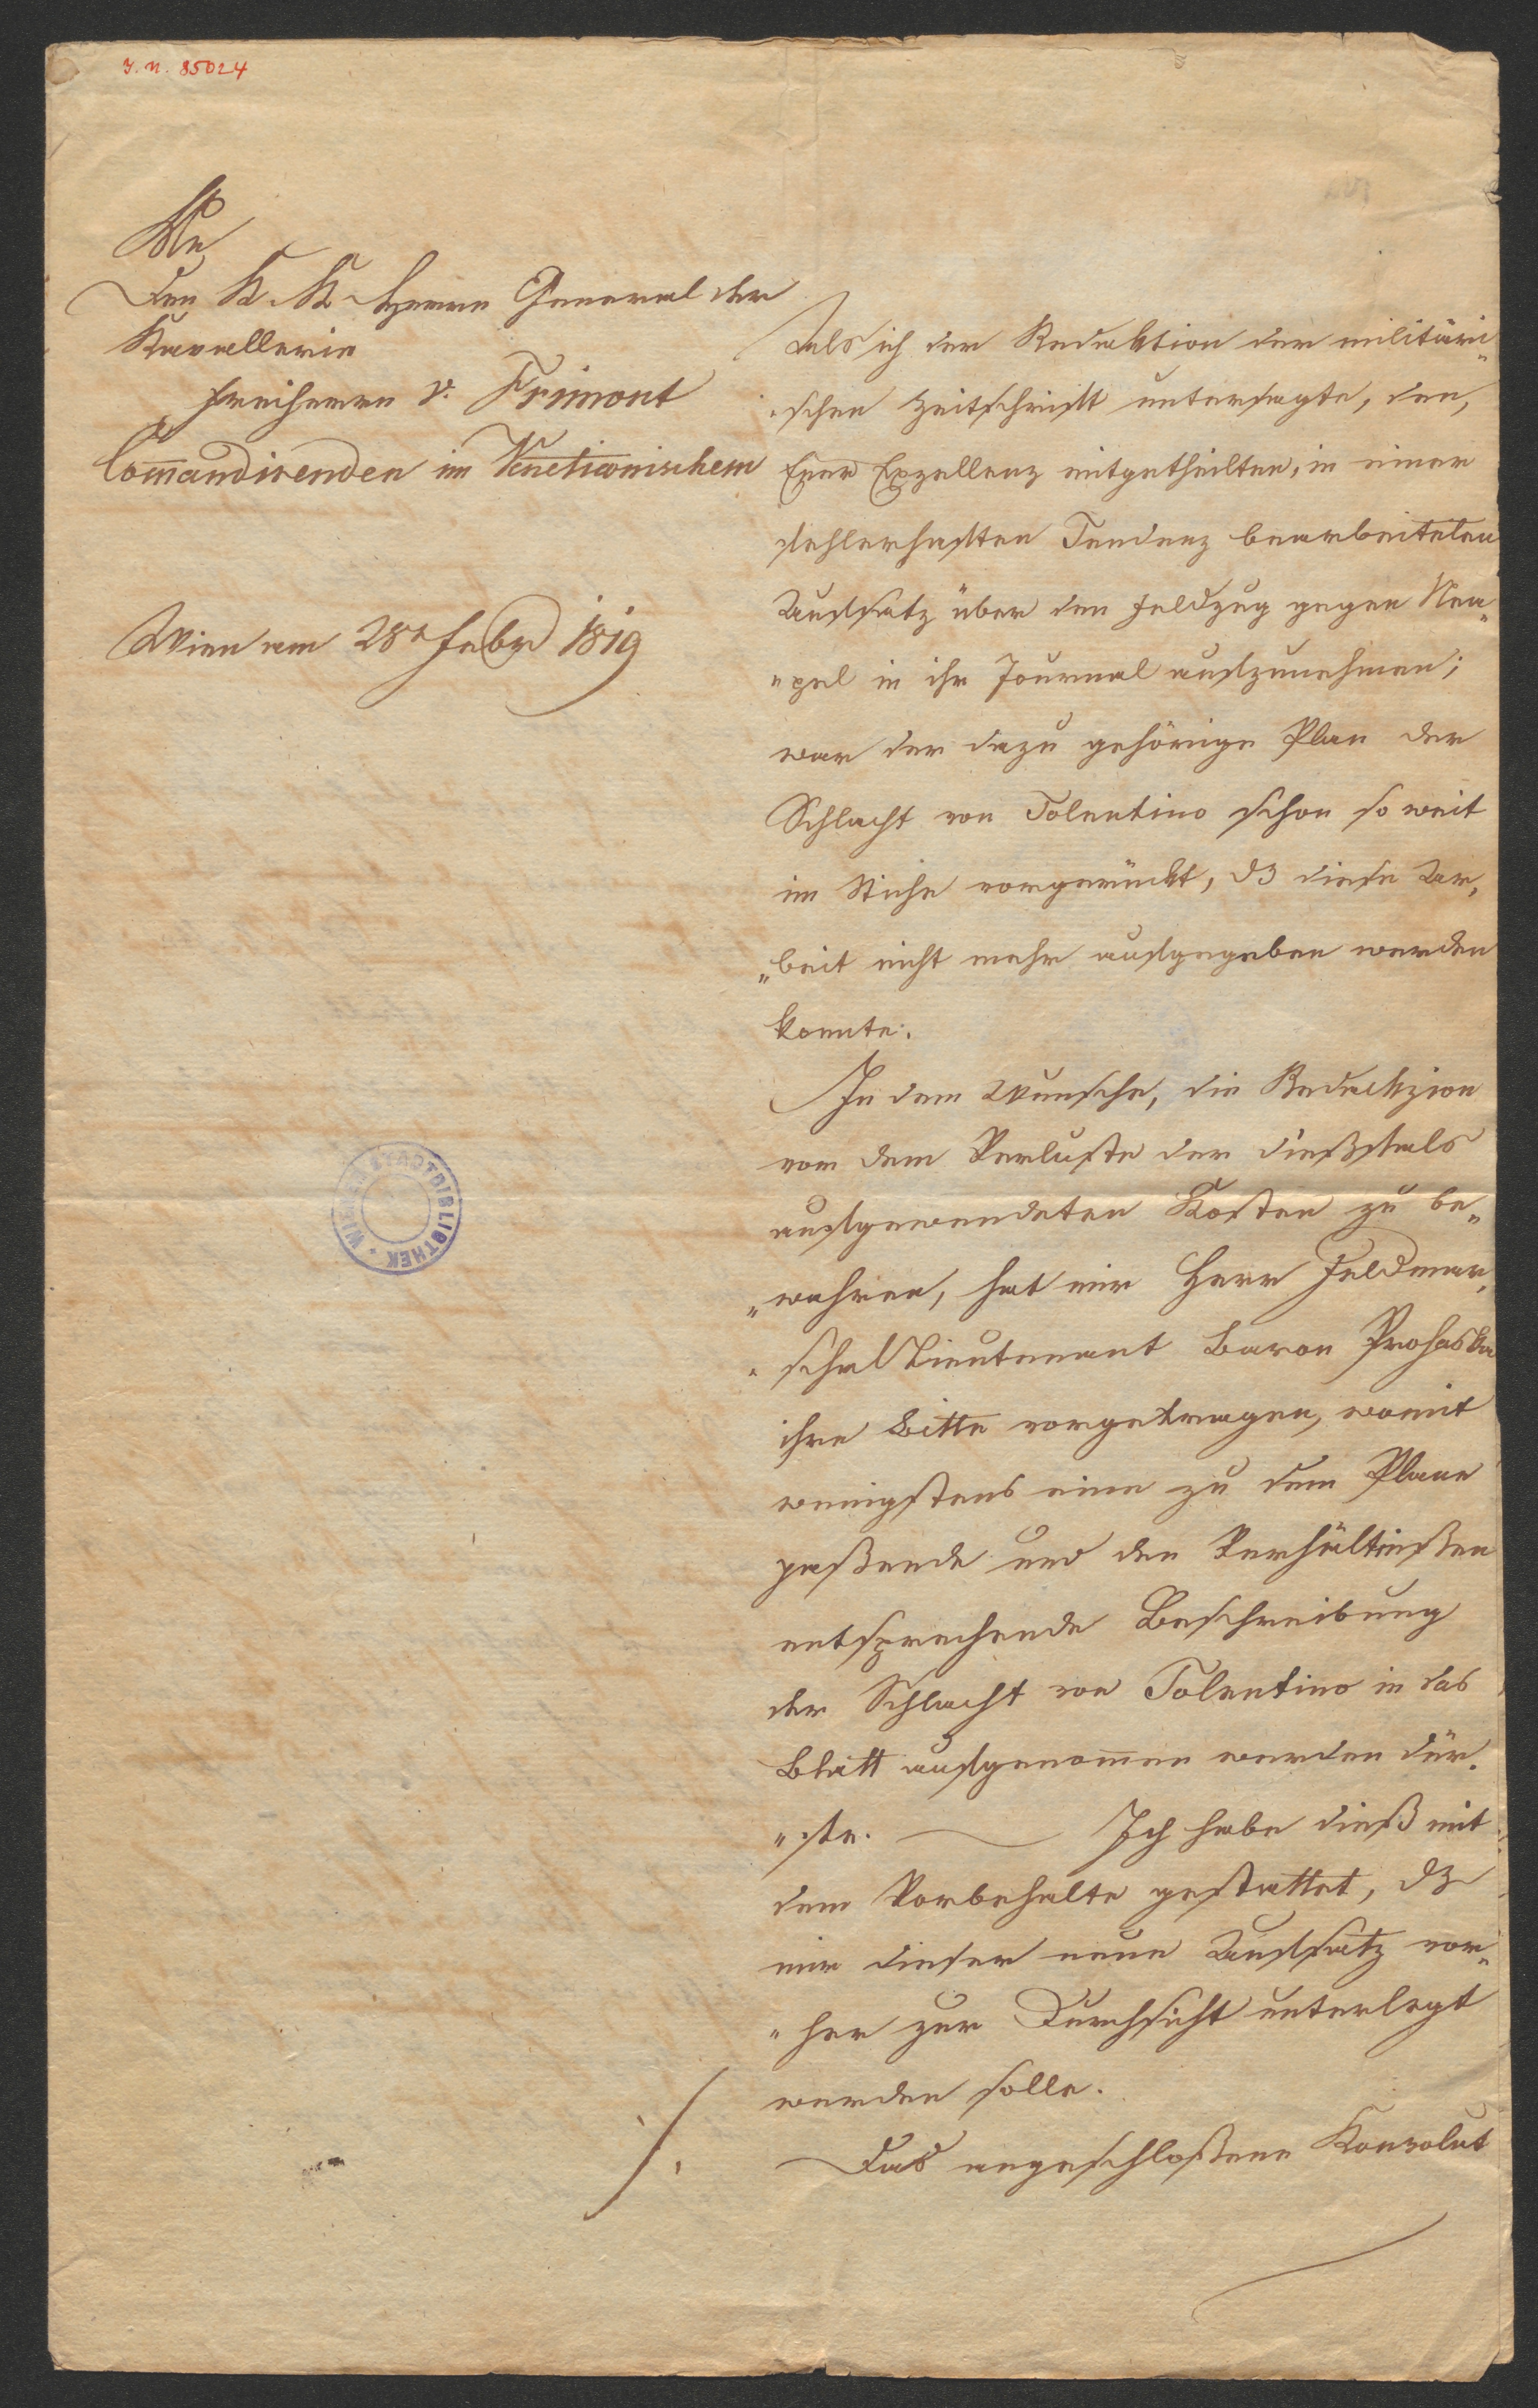 J. N. 85024
An
Den K. K. Herrn General der
Kavallerie
Freiherrn v. Frimont
Com̄andirenden im Venetianischem
Wien am 28t Febr 1819
Als ich der Redaktion der militäri„
„schen Zeitschrift untersagte, den,
Euer Exzellenz mitgetheilten, in einer
fehlerhaften Tendenz bearbeiteten
Aufsatz über den Feldzug gegen Nea„
„pel in ihr Journal aufzunehmen;
war der dazu gehörige Plan der
Schlacht von Tolentino schon so weit
im Stiche vorgerückt, dß diese Ar„
„beit nicht mehr aufgegeben werden
konnte.
In dem Wunsche, die Redakzion
vor dem Verluste der dießfals
aufgewendeten Kosten zu be„
„wahren, hat mir Herr Feldmar„
„schal Lieutenant Baron Prohaska
ihre Bitte vorgetragen, womit
wenigstens eine zu dem Plane
paßende und den Verhältnißen
entsprechende Beschreibung
der Schlacht von Tolentino in das
Blatt aufgenom̄en werden dür„
„fte. Ich habe dieß mit
dem Vorbehalte gestattet, dß
mir dieser neue Aufsatz vor„
„her zur Durchsicht unterlegt
werden solle.
./. Das angeschloßene Konvolut
WIENER STADTBIBLIOTHEK